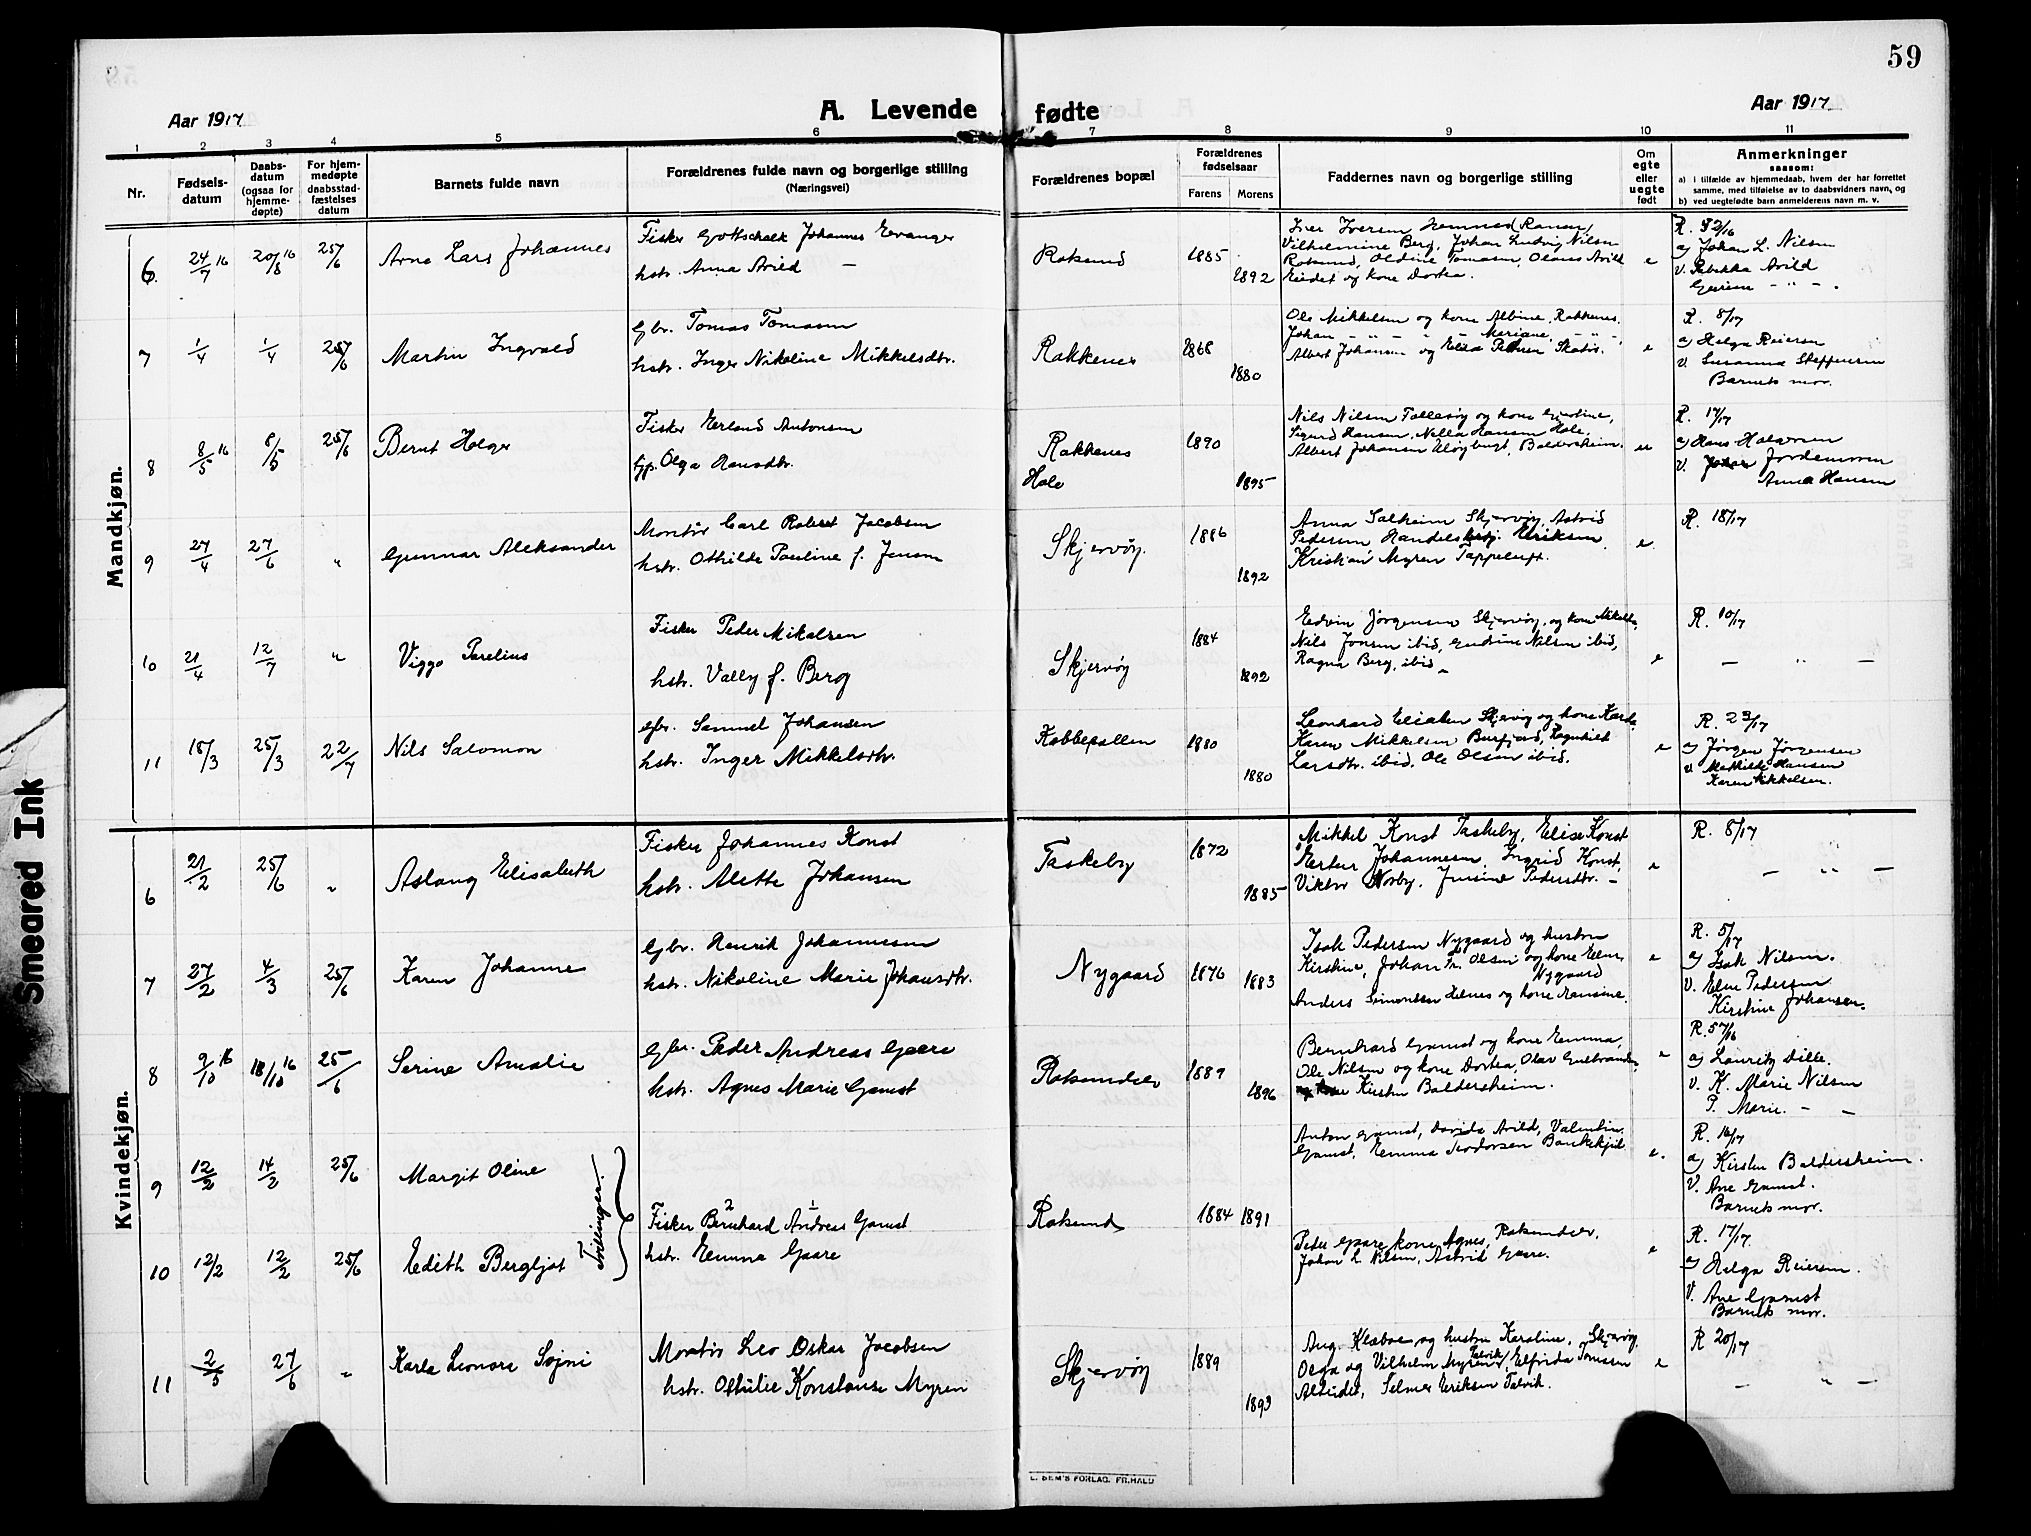 59
A. Levende fødte
Aar 1917
Aar 1917
1 2 3 4 5 6 7 8 9 10 11
Nr.
Fødsels-datum
Daabs-datum (ogsaa for hjemme-døpte)
For hjem-medøpte daabsstad-fæstelses datum
Barnets fulde navn
Forældrenes fulde navn og borgerlige stilling
(Næringsvei)
Forældrenes bopæl
Forældrenes fødselsaar
Farens Morens
Faddernes navn og borgerlige stilling
Om egte eller uegte født
Anmerkninger
saasom:
a) i tilfælde av hjemmedaab, hvem der har forrettet
samme, med tilføielse av to daabsvidners navn, og
b) ved uegtefødte barn anmelderens navn m. v.
Mandkjøn.
6. 24/7 16 20/8 16 25/6 Arne Lars Johannes
Fisker Gottschalk Johannes Evanger
hstr. Anna Arild —
Roksund 1885 1892
Iver Iversen Hemnes Ranen,
Vilhelmine Berg, Johan Ludvig Nilsen
Roksund, Oldine Tomasen, Olaus Arild
Eidet og kone Dortea.
e
R. 52/16
a) Johan L. Nilsen
v. Rebekka Arild
7 1/4 1/4 25/6 Martin Ingvald
Gbr. Tomas Tomasen
hstr. Inger Nikoline Mikkelsdtr.
Rakkenes 1868 1880
Ole Mikkelsen og kone Albine, Rakkenes.
Johan — " — " — Mariane, — " —
Albert Johansen og Elisa Pedersen
e
R. 8/17
a) Helga Reiersen
v. Susanna Steffensen
Barnets mor.
8 8/5 16 8/5 25/6 Bernt Holger
Fisker Erland Antonsen
tjp. Olga Hansdtr.
Rakkenes
Hole
1890 1895
Nils Nilsen Follesøy og kone
Sigurd Hansen, Nella Hansen Hole,
Albert Johansen Uløybugt, Baldersheim.
ue
R. 17/17
a) Hans Halvorsen
v. Jordemoren
Anna Hansen
9 27/4 27/6 " Gunnar Aleksander
Montør Carl Robert Jacobsen
hstr. Othilde Pauline f. Jensen
Skjervøy. 1886 1892
Anna Solheim Skjervøy, Astrid
Pedersen Handelsbetj. Eriksen
Kristian Myren Tappeluft.
e.
R. 18/17
10 21/4 12/7 " Viggo Parelius
Fisker Peder Mikalsen
hstr. Vally f. Berg
Skjervøy 1884 1892
Edvin Jørgensen Skjervøy, og kone
Nils Jonsen ibid, Gudrun Nilsen ibid,
Ragna Berg, ibid —
e
R. 10/17
— " —
11 18/3 25/3 22/7 Nils Salomon
gbr. Samuel Johansen
hstr. Inger Mikkelsdtr.
Kobbepollen 1880 1880
Leonhard Eliassen Skjervøy og kone
Karen Mikkelsen Burfjord, Ragnhild
Larsdtr. ibid. Ole Olsen ibid.
e
R. 23/17
a) Jørgen Jørgensen
v. Mathilde Hansen
Karen Mikkelsen.
Kvindekjøn.
6 21/2 25/6 " Aslaug Elisabeth
Fisker Johannes Konst
hstr. Alette Johansen
Taskeby 1872 1885
Mikkel Konst Taskeby, Elise Konst
Johannesen, Ingrid Konst,
Viktor Norby, Jensine Pedersdtr. —
e
R. 8/17
— " —
7 27/2 4/3 25/6 Karen Johanne
Gbr. Henrik Johannesen
hstr. Nikoline Marie Johansdtr.
Nygaard 1876 1883
Isak Pedersen Nygaard og hustru
Kirstine, Johan Fr. Olsen og kone Elen,
Nygaard
Anders Simonsen Helnes og kone Hansine.
e
R. 5/17
a) Isak Nilsen.
v. Elen Pedersen
Kirstine Johansen.
8 9/10 16 18/10 16 25/6 Serine Amalie
Gbr. Peder Andreas Gaare
hstr. Agnes Marie Gamst
Roksundeir 1889 1896
Bernhard Gamst og kone Emma,
Ole Nilsen og kone Dortea, Olav Gulbrandsen
Kirsten Baldersheim.
e
R. 57/16
a) Lauritz Dille.
v. K. Marie Nilsen
P. Marie. — —
9 12/2 14/2 25/6 Margit Oline
Anton Gamst, Davida Arild, Valentin
Gamst, Emma Teodorsen
e.
R. 16/17
a) Kirsten Baldersheim.
v. Ane Gamst.
Barnets mor.
Tvillinger.
Fisker Bernhard 2 Andreas 1 Gamst
hstr. Emma Gaare
Roksund 1884 1891
10 12/2 12/2 25/6 Edith Bergljot
Peder Gaare, kone Agnes, Roksundeir,
Johan L. Nilsen, Astrid Gaare.
e
R. 17/17.
a) Helga Reiersen.
v. Ane Gamst
Barnets mor.
11 2/5 27/6 " Karla Leonora Sojni
Montør Leo Oskar Jacobsen
hstr. Ottilie Konstanse Myren
Skjervøy 1889 1893
Aug. Klæboe og hustru Karoline, Skjervøy.
Olga og Vilhelm Myren Talvik, Elfrida Tomassen
Alteidet, Selmer Eriksen Talvik.
e
R 20/17
— " —
L. BEM'S FORLAG. FR.HALD
Smeared Ink